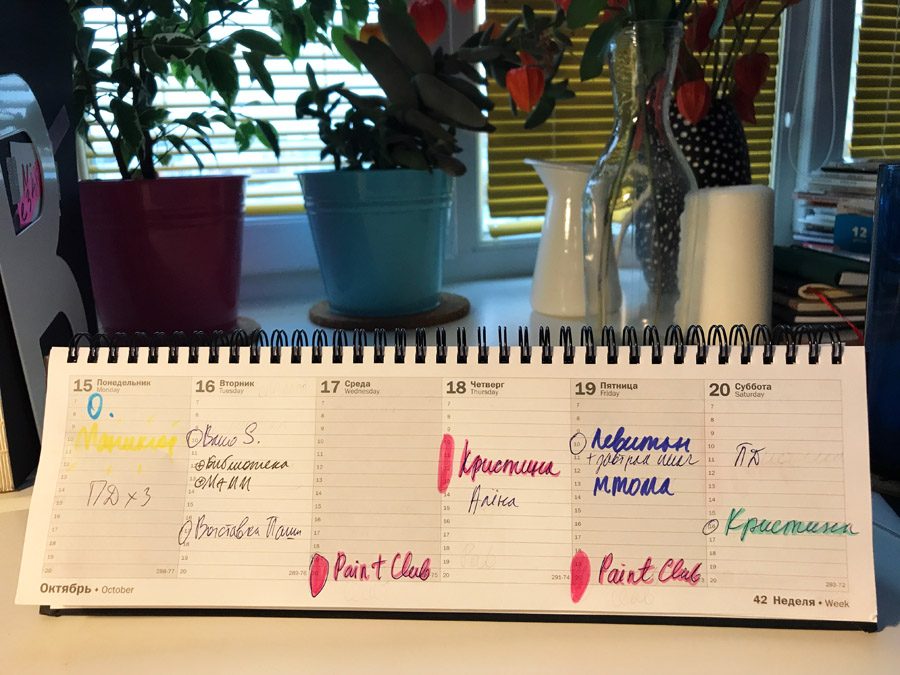 15 Понедельник
Monday
О.
ПД х 3
288-77
16 Вторник
Tuesday
S.
Библиотека
МАММ
Выставка Паши
17 Среда
Wednesday
Paint Club
18 Четверг
Thursday
Кристина
Алёна
291-74
19 Пятница
Friday
Левитан
+ завтрак
ММОМА
Paint Club
20 Суббота
Saturday
ПД
Кристина
Октябрь • October
42 Неделя • Week
12